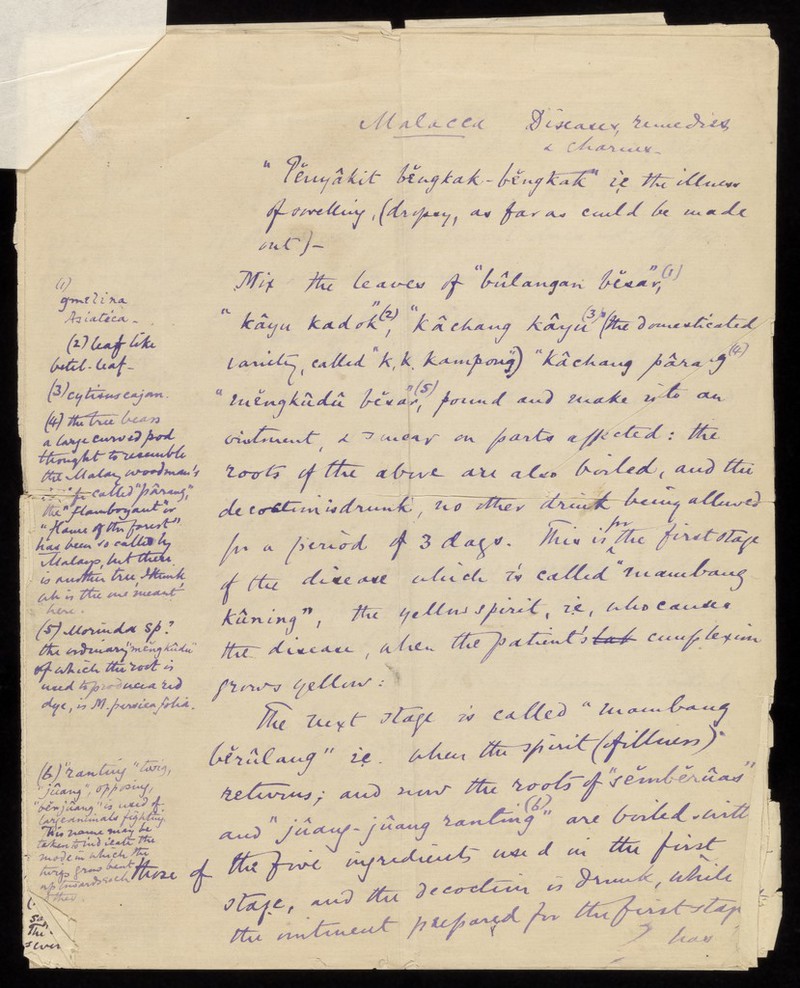 Malacca Diseases, remedies
& charms -
"Pĕnyâkit bĕngkak-bĕngkak" ie the illness
of swelling, (dropsy, as far as could be made
out) -
Mix the leaves of "bûlangan bĕsar",(1)
"kâyu kadok"(2), "kâchang kâyu"(3) (the domesticated
variety, called "k. k. kampong") "kâchang pârang"(4)
"mĕngkûdû bĕsar",(5) pound and make into an
ointment, & smear on parts affected: the
roots of the above are also boiled, and the
decoction is drunk, no other drink being allowed
for a period of 3 days. This is for the first stage
of the disease which is called "mambang
kûning", the yellow spirit, ie, who causes
the disease, when the patient's complexion
grows yellow:
The next stage is called "mambang
bĕrûlang" ie. when the spirit (of illness)
returns; and now the roots of "sĕmbĕrûas"
and "jûang-jûang ranting"(6) are boiled with
those of the five ingredients used in the first
stage, and the decoction is drunk, while
the ointment prepared for the first stage
has
(1)
gmelina
Asiatica -
(2) leaf like
betel-leaf -
(3) cytisus cajan.
(4) the tree bears
a large curved pod
thought to resemble
the Malay woodman's
called "pârang",
the "flamboyant" or
"flame of the forest"
has been so called by
Malays, but there
is another tree, I think
wh is the one meant
here.
(5) Morinda sp?
the ordinary "mĕngkûdû"
of which the root is
used to produce a red
dye, is M. persicafolia.
(6) "ranting" twig,
"jûang", opposing,
"bĕrjûang" is used of
large animals fighting
This name may be
taken to indicate the
mode in which the
twigs grow
upwards
other.
The